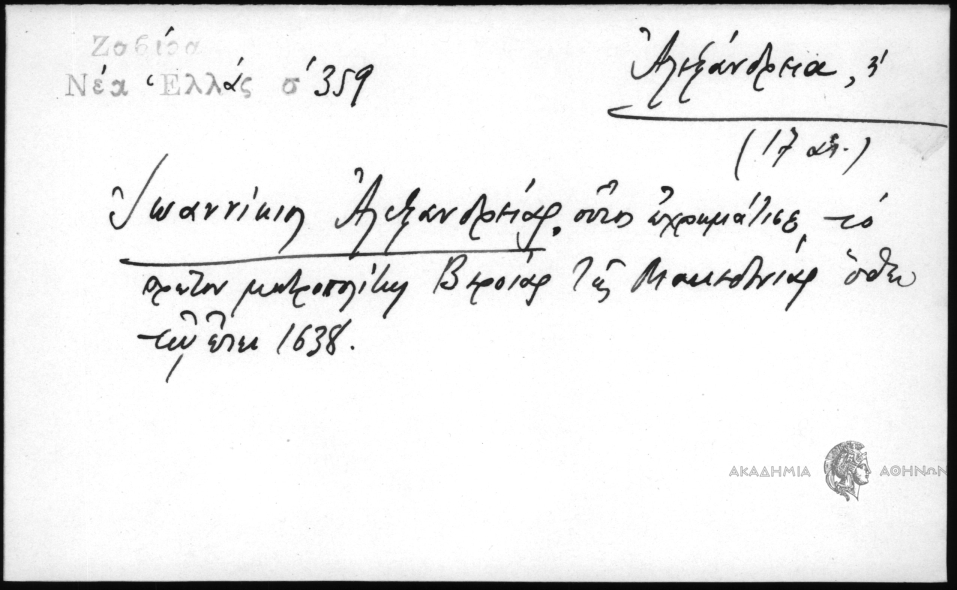 Ζαβίρα
Νέα Ἑλλάς σ 359
Ἀλεξάνδρεια, ἡ
(17 αἰ.)
Ἰωαννίκιος Ἀλεξανδρείας, οὗτος ἐχρημάτισε τὸ
πρῶτον μητροπολίτης Βεροίας τῆς Μακεδονίας ὅθεν
τῷ ἔτει 1638.
ΑΚΑΔΗΜΙΑ ΑΘΗΝΩΝ